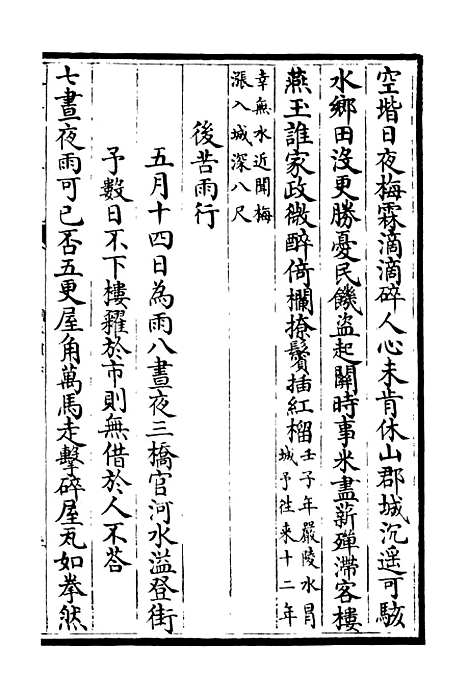 空堦日夜梅霖滴滴碎人心未肯休山郡城沉遥可駭
水鄉田沒更勝憂民饑盗起關時事米盡薪殫滯客樓
燕玉誰家政微醉倚欄撩鬢插紅榴壬子年嚴陵水冒
城予往来十二年
幸無水近聞梅
漲入城深八尺
後苦雨行
五月十四日為雨八晝夜三橋官河水溢登街
予數日不下樓糴於市則無借於人不荅
七晝夜雨可已否五更屋角萬馬走擊碎屋瓦如拳然